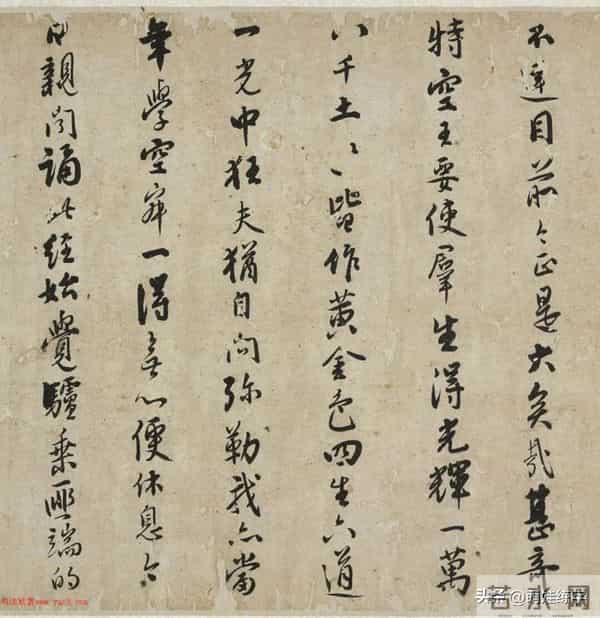 不違目前今正是大矣哉甚奇
特空王要使羣生得光輝一萬
八千土々皆作黃金色四生六道
一光中狂夫猶自问弥勒我亦當
年學空寂一得無心便休息今
日親闻誦此經始覺驢乘匪端的